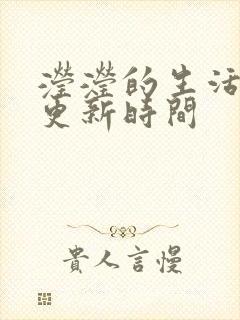 瀅瀅的生活
更新時間
貴人言慢